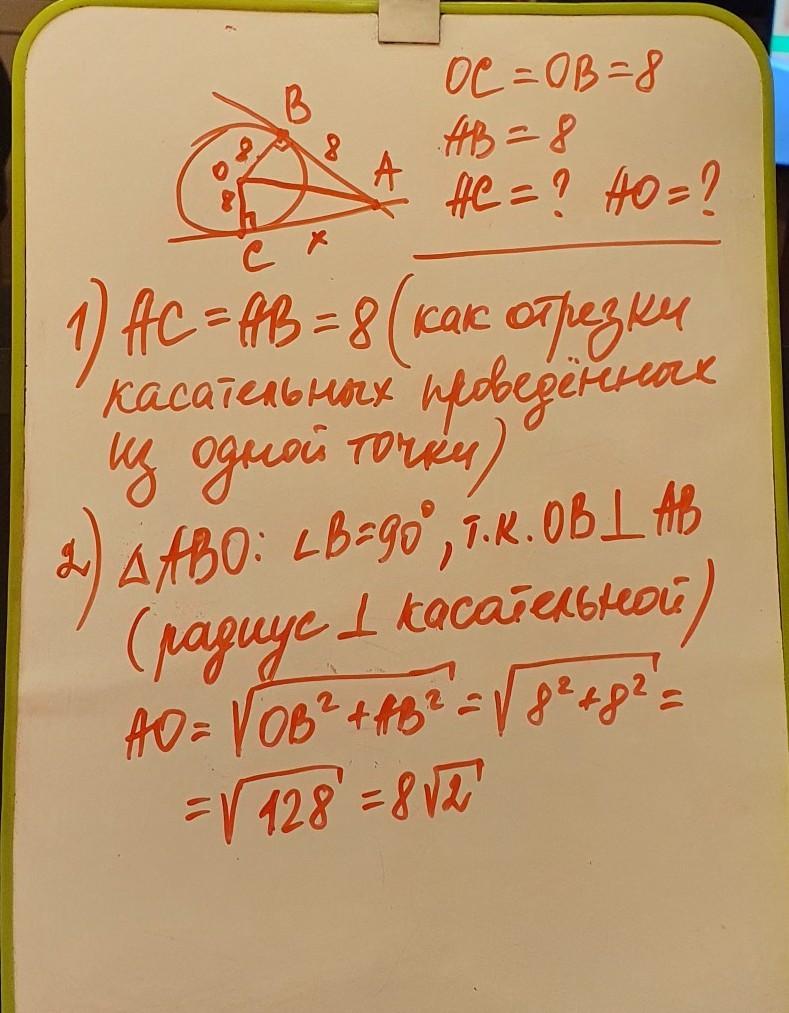 B
8
8
O
A
8
C
x
OC = OB = 8
AB = 8
AC = ? AO = ?
1) AC = AB = 8 (как отрезки
касательных проведённых
из одной точки)
2) △ABO: ∠B=90°, т.к. OB⊥AB
(радиус ⊥ касательной)
AO = √(OB² + AB²) = √(8² + 8²) =
= √128 = 8√2